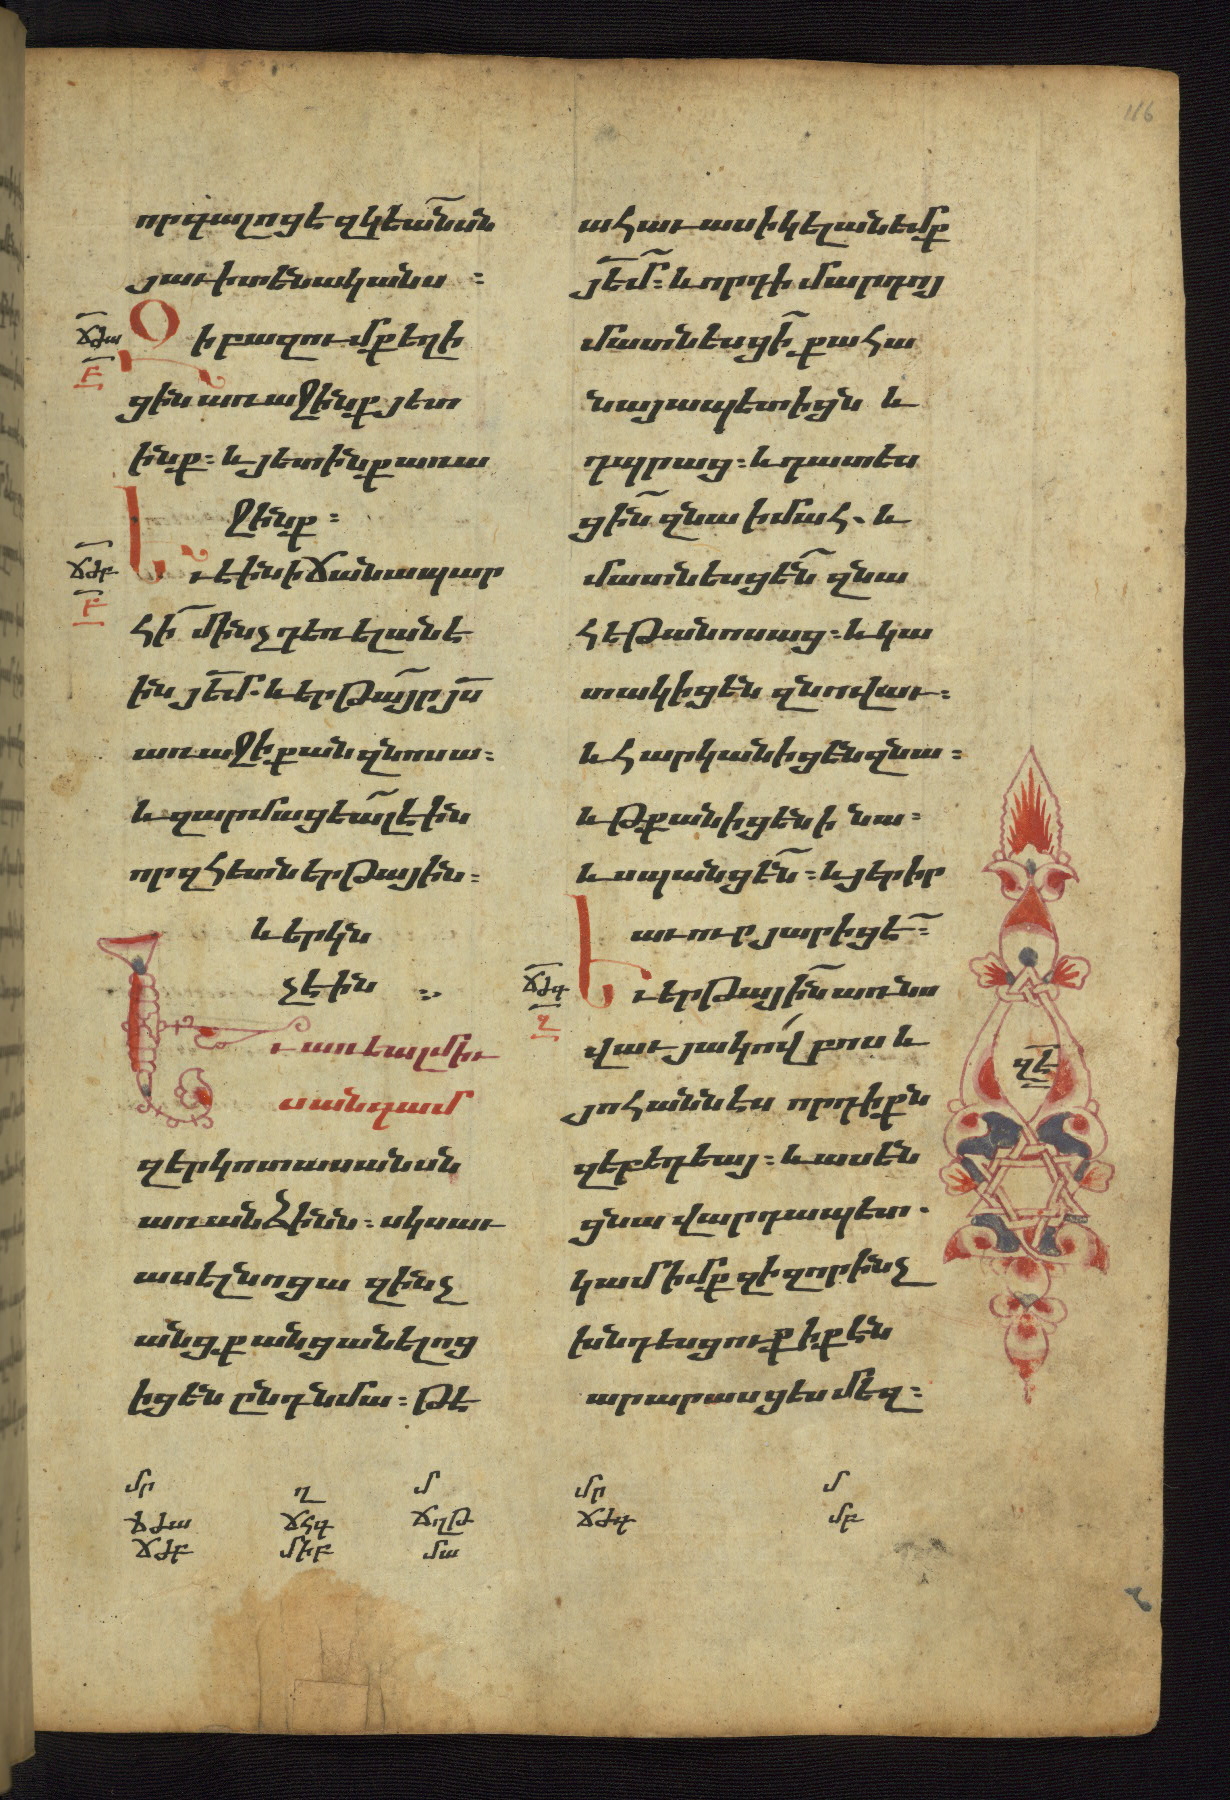 116
որ գալոց է զկեանսն
յաւիտենականս ։
ճժա
Զի բազումք եղի
բ
ցին առաջինք յետ
ինք ։ և յետինք առա
ջինք ։
ճժբ
Եւ էին ի ճանապար
բ
հի մինչդեռ ելանէ
ին յեմ ․ և երթայր յս
առաջի քան զնոսա ։
և զարմացեալ էին
որ զհետն երթային ։
և երկն
չէին ։
Եւ առեալ միւ
սանգամ
զերկոտասանսն
առանձինն ։ սկսաւ
ասել նոցա զինչ
անցք անցանելոց
իցեն ընդ նմա ։ թէ
ահաւասիկ ելանեմք
յեմ ։ և որդի մարդոյ
մատնեսցի քահա
նայապետիցն և
դպրաց ։ և դատես
ցեն զնա ի մահ ․ և
մատնեսցեն զնա
հեթանոսաց ։ և կա
տակիցեն զնովաւ ։
և հարկանիցեն զնա ։
և թքանիցեն ի նա ։
և սպանցեն ։ և յերիր
աւուր յարիցէ ։
ճժգ
Եւ երթային առնո
վաւ յակովբոս և
յոհաննէս որդիքն
զեբեդեայ ։ և ասեն
ցնա վարդապետ ․
կամիմք զի զոր ինչ
խնդեսցուք ի քէն
արարասցես մեզ ։
զէ
մր ղ մ մր մ
ճժա ճհգ ճղթ ճժգ մբ
ճժբ միբ մա